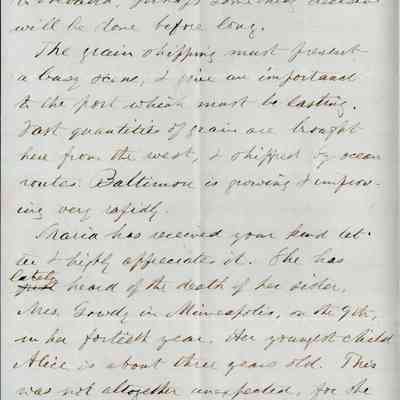 perhaps something decisive
will be done before long.
The grain shipping must present
a busy scene, & give an importance
to the port which must be lasting.
Vast quantities of grain are brought
here from the west, & shipped by ocean
routes. Baltimore is growing & improv-
ing very rapidly.
Maria has received your kind let-
ter & highly appreciates it. She has
lately
just heard of the death of her sister,
Mrs. Gowdy in Minneapolis, on the 9th,
in her fortieth year. Her youngest child
Alice is about three years old. This
was not altogether unexpected, for she